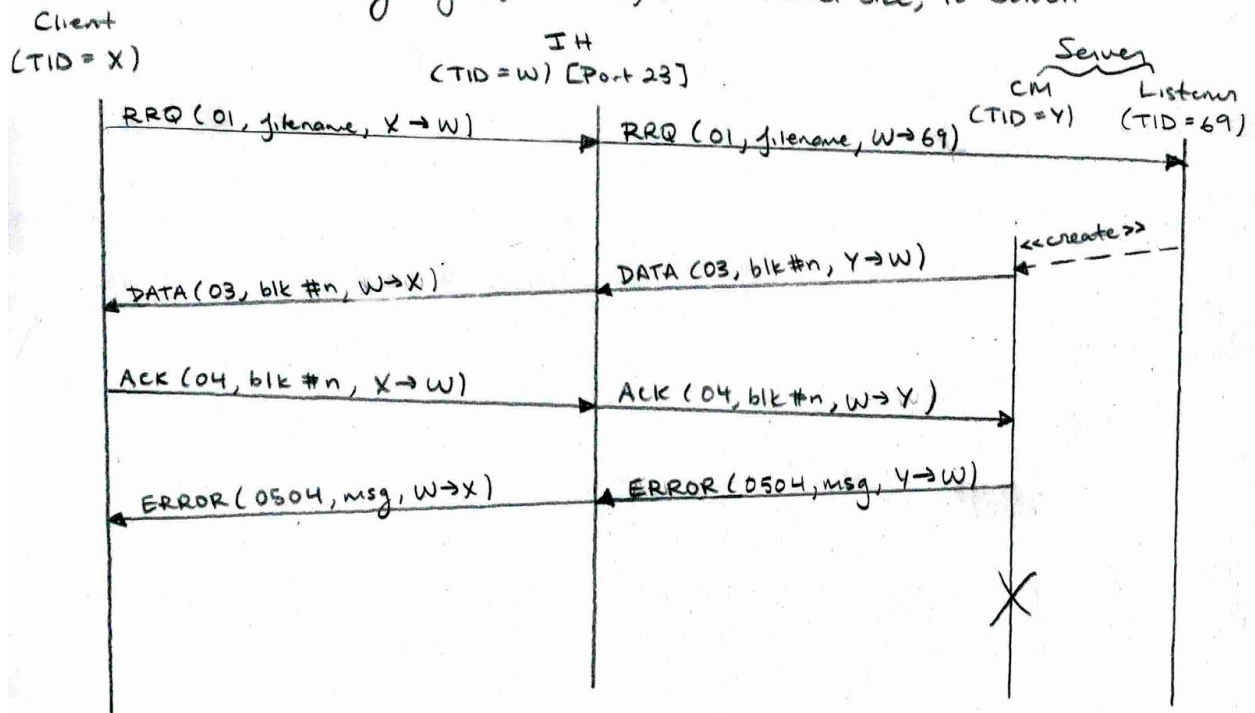 size, to server
Client
(TID = X)
IH
(TID = W) [Port 23]
Server
CM
(TID = Y)
Listener
(TID = 69)
RRQ (01, filename, X → W)
RRQ (01, filename, W → 69)
<<create>>
DATA (03, blk #n, Y → W)
DATA (03, blk #n, W → X)
ACK (04, blk #n, X → W)
ACK (04, blk #n, W → Y)
ERROR (0504, msg, Y → W)
ERROR (0504, msg, W → X)
X